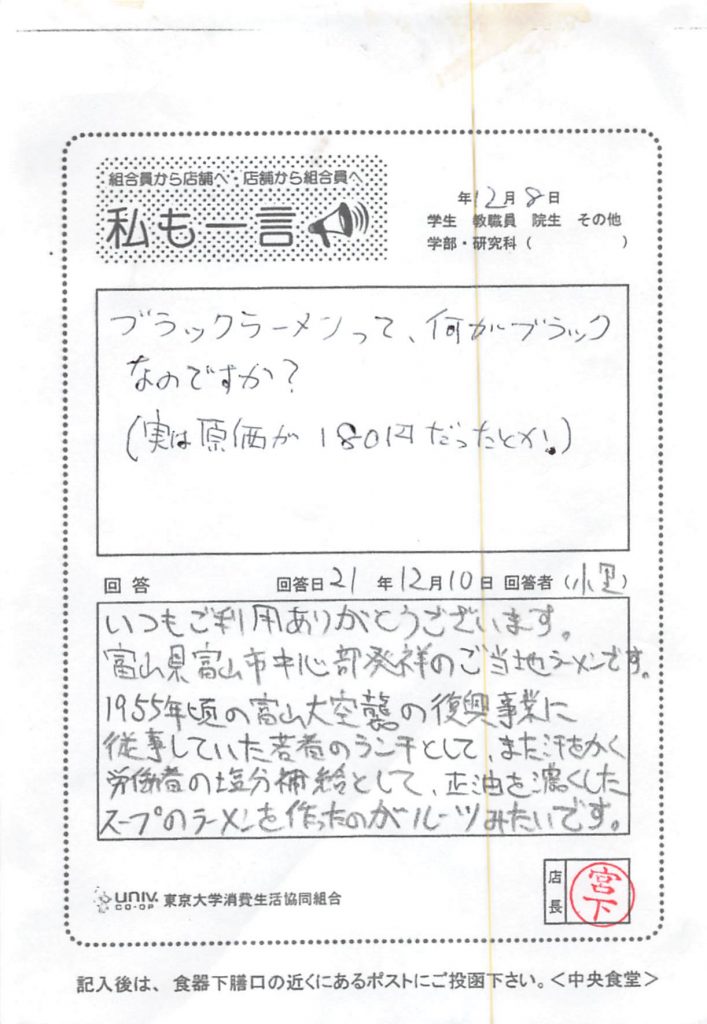 組合員から店舗へ・店舗から組合員へ
私も一言
年12月8日
学生 教職員 院生 その他
学部・研究科（ ）
ブラックラーメンって、何がブラック
なのですか？
（実は原価が180円だったとか！）
回答 回答日21年12月10日 回答者（小里）
いつもご利用ありがとうございます。
富山県富山市中心部発祥のご当地ラーメンです。
1955年頃の富山大空襲の復興事業に
従事していた若者のランチとして、また汗をかく
労働者の塩分補給として、正油を濃くした
スープのラーメンを作ったのがルーツみたいです。
UNIV. CO-OP 東京大学消費生活協同組合
店長 宮下
記入後は、食器下膳口の近くにあるポストにご投函下さい。＜中央食堂＞